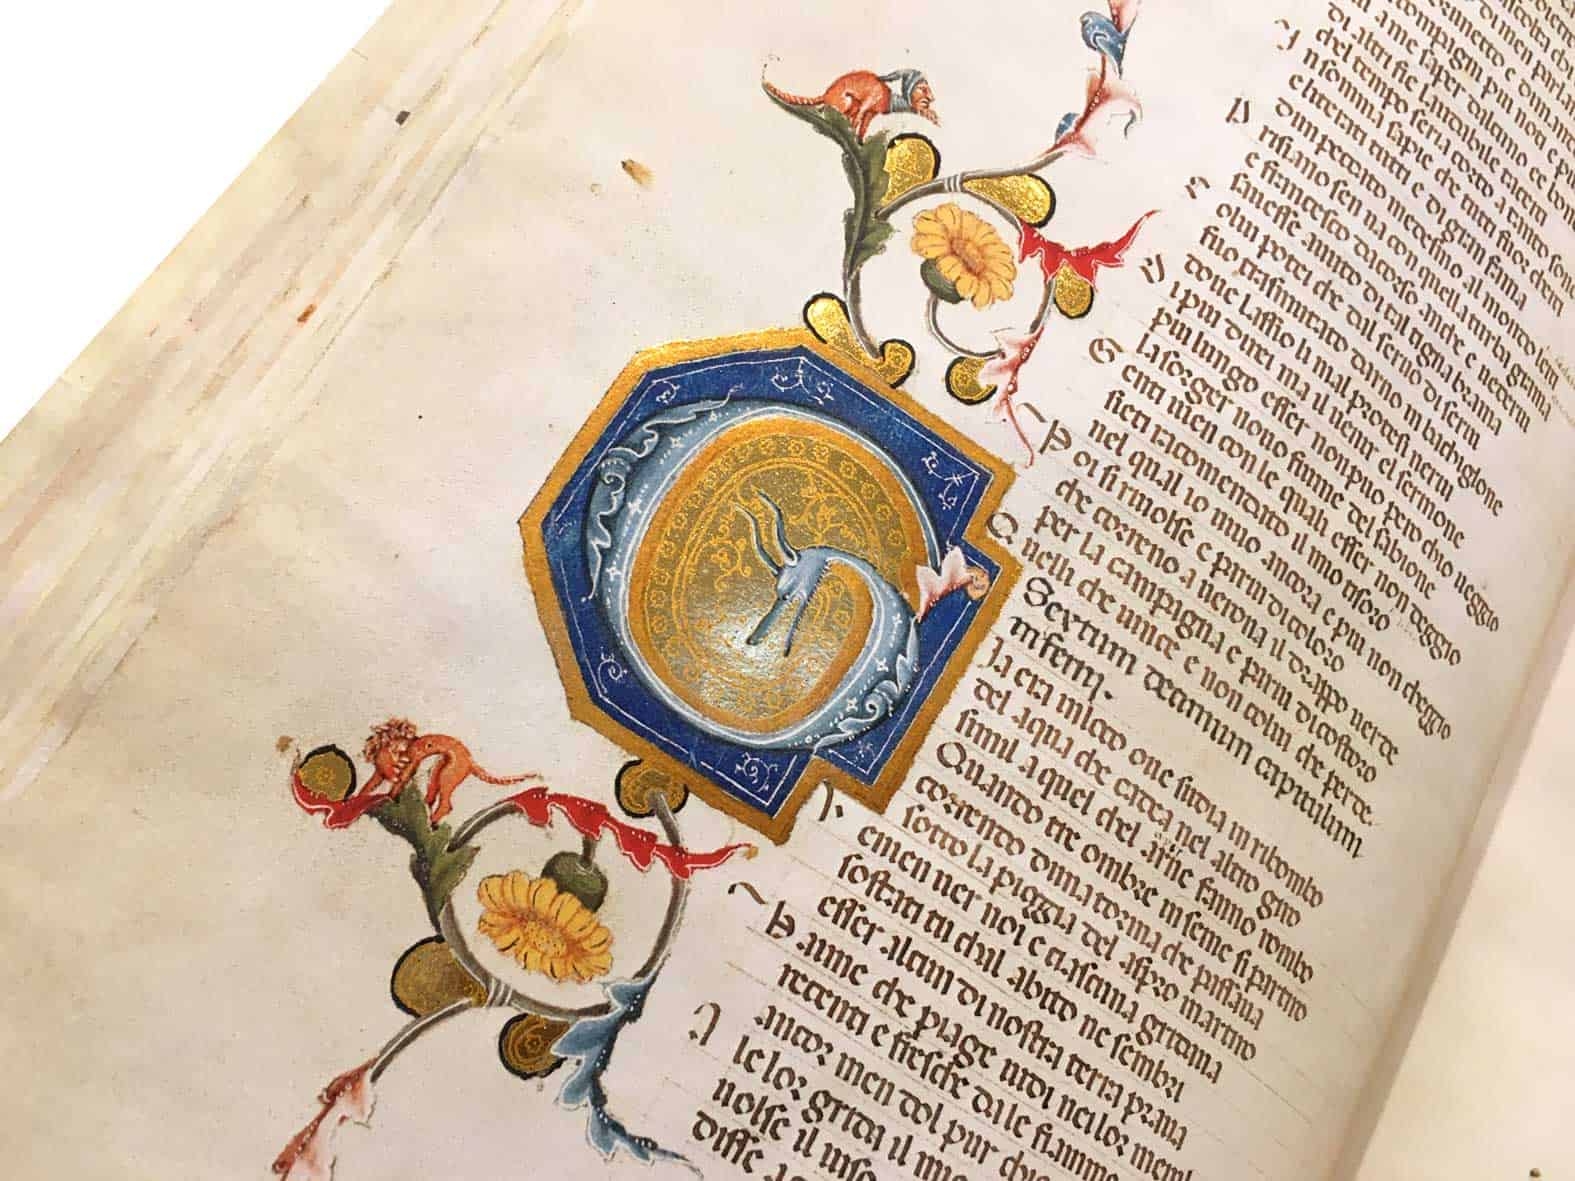 compagni piu noti e piu
a me saper dalcuno et bono
di altri fie laudabile tacerci
chel tempo seria corto a tanto sono
In somma sapie che tutti fuor cherci
e litterati tutti e di gran fama
dun peccato medesmo al mondo lerci
Prisiano sen ua con quella turba grama
e francesco dacorso anche e uederui
sauesse auuto di tal tigna brama
Colui potei che dal seruo di serui
fuo trasmutato darno in bachiglone
doue lassio li mal protesi nerui
Di piu direi ma il uenir el sermone
piu lungo esser non puo pero chio ueggio
la sorger nouo fumo del sabione
Genti uien con le quali esser non deggio
sieti racomendato il mio tisoro
nel qual io uiuo ancora e piu non cheggio
Poi si riuolse e parui di coloro
che correno a uerona il drappo uerde
per la campagna e parui di costoro
Quelli che uince e non colui che perde.
Sextum decimum capitulum
inferni.
Ia era in loco oue sudia in ribombo
del aqua che cadea nel altro giro
simil a quel chel arnie fanno rombo
Quando tre ombre inseme si partiro
correndo duna torma che passaua
sotto la pioggia del aspro martiro
Venien uer noi e ciascuna gridaua
sostati tu chal abito ne sembri
esser alcun di nostra terra praua
Haime che piage uidi nei lor membri
recenti e fresche da le fiamme
ancor men dol pur chi
A le lor grida il mio
uolse il uiso
disse